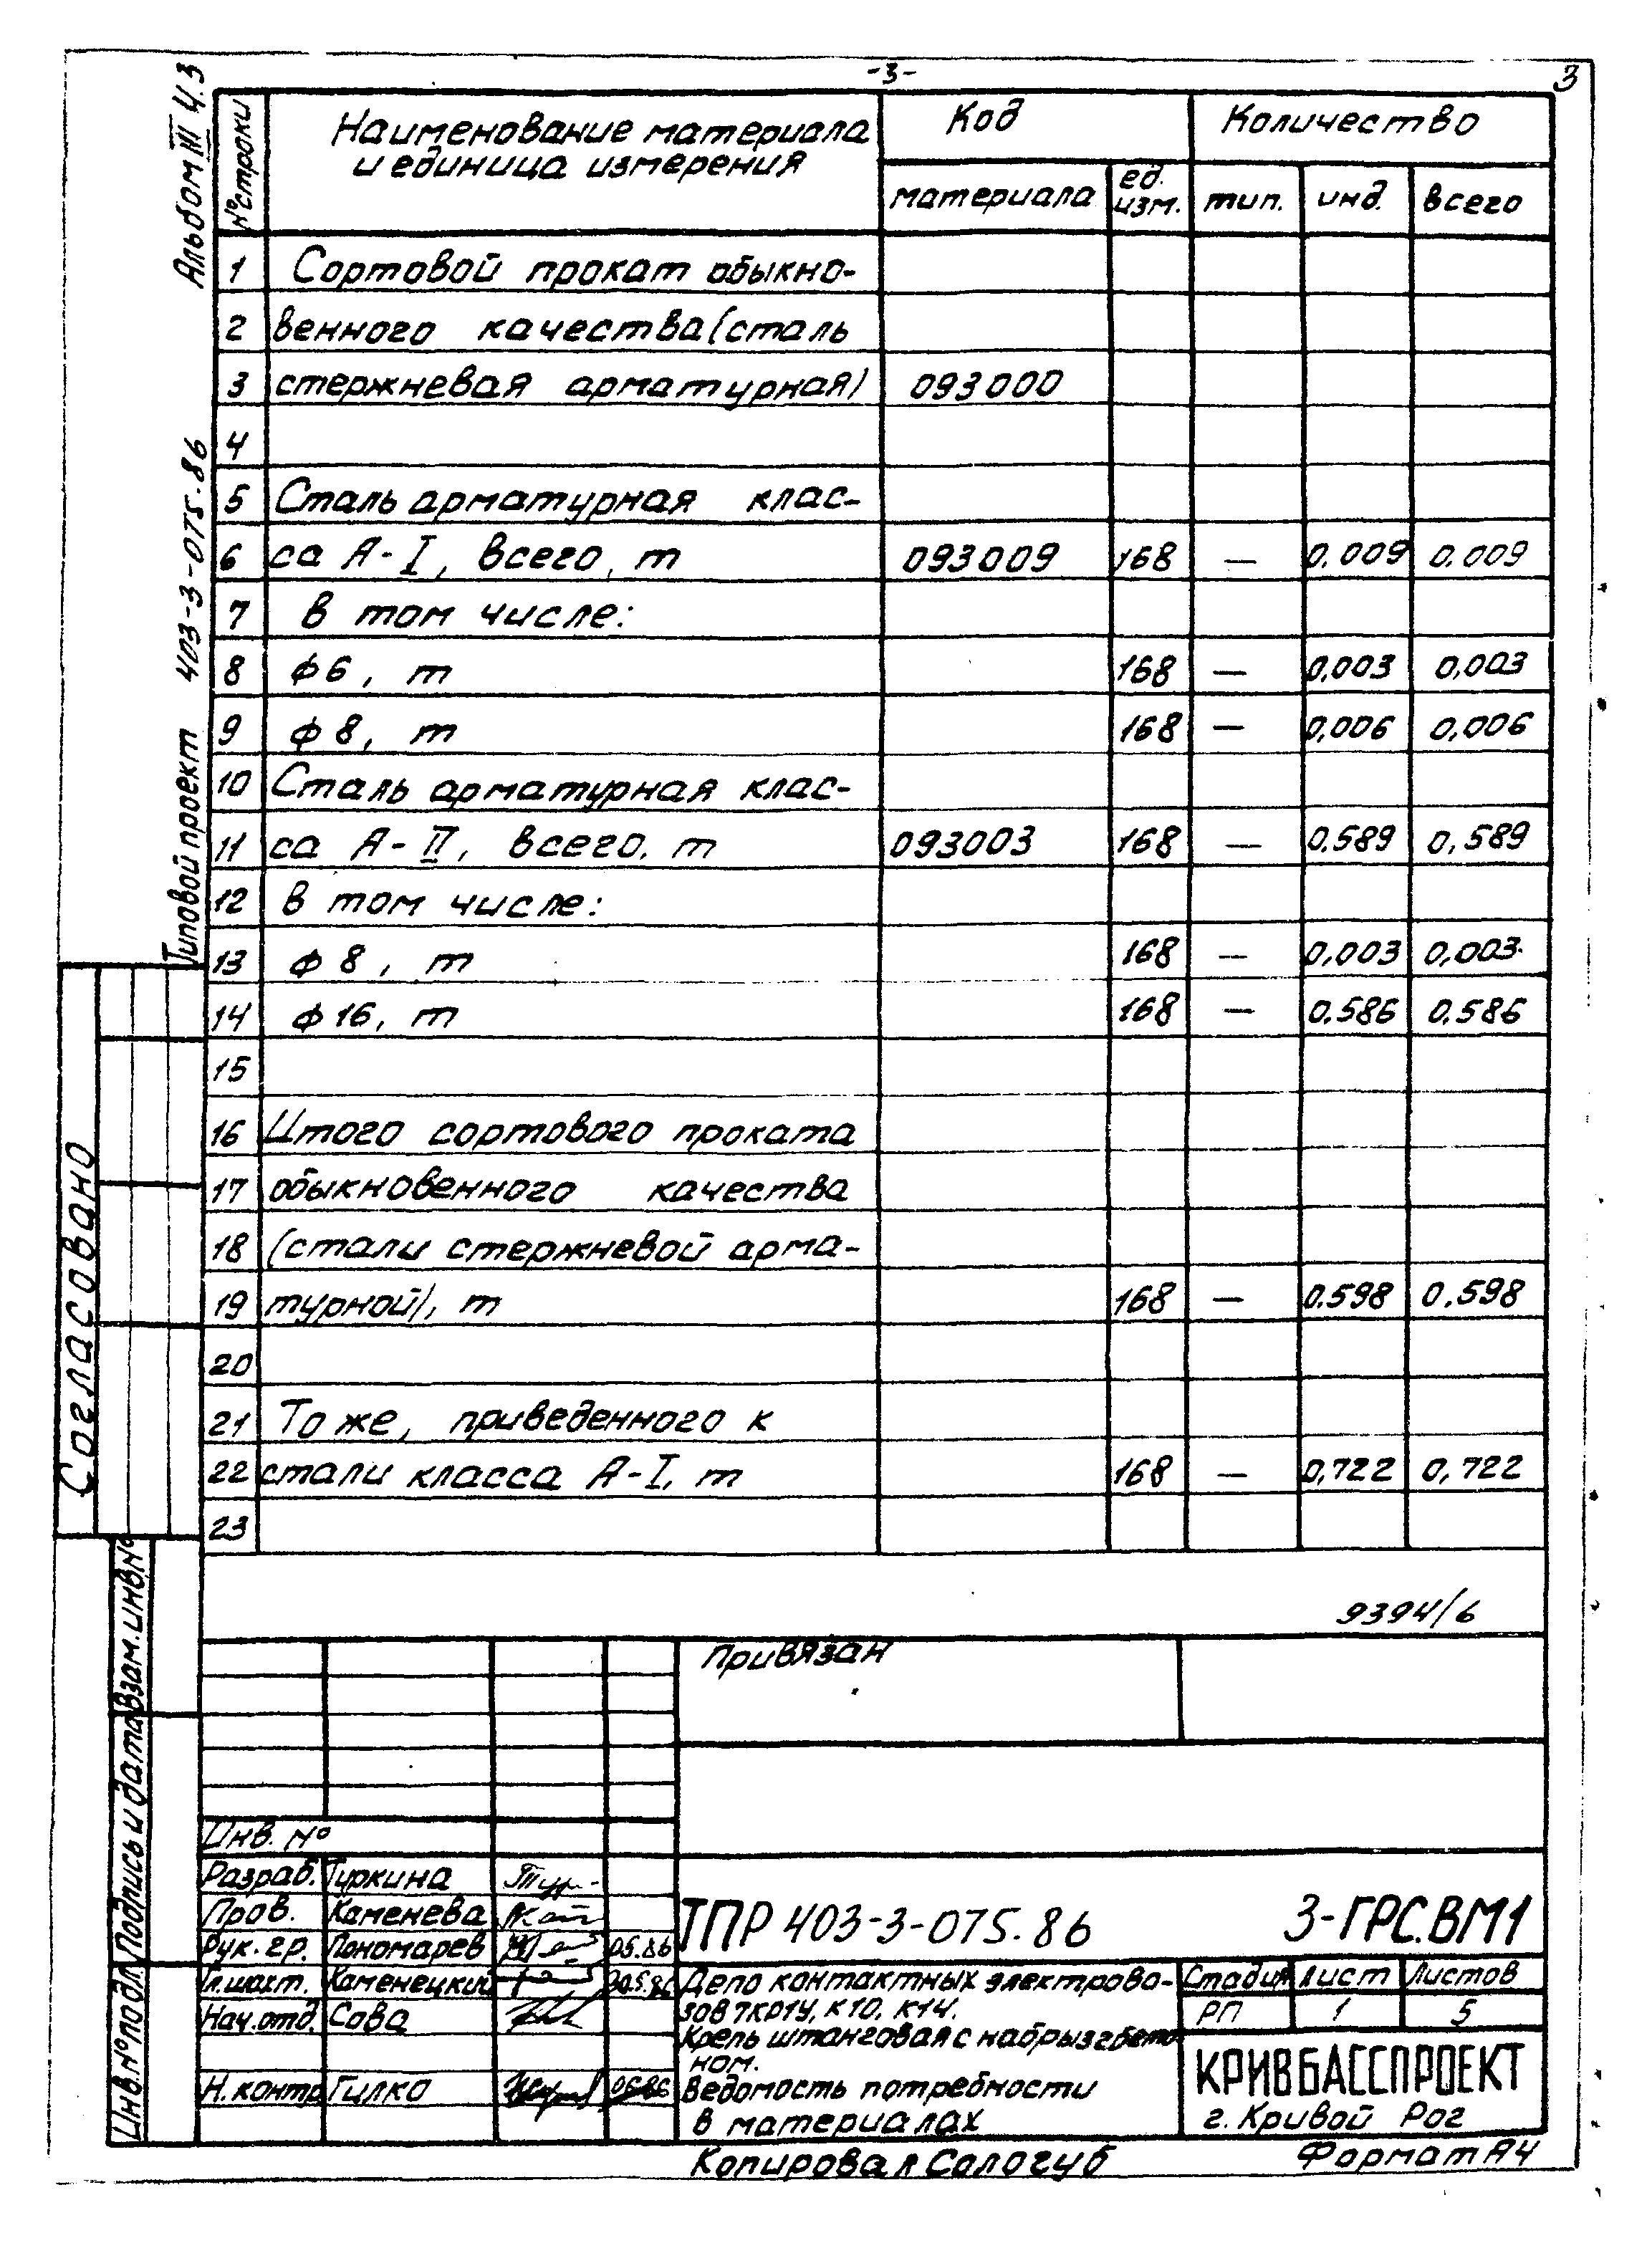 -3-
3
Альбом III ч.3
Типовой проект 403-3-075.86
№ строки
Наименование материала
и единица измерения
Код
Количество
материала
ед.
изм.
тип.
инд.
всего
1 Сортовой прокат обыкно-
2 венного качества (сталь
3 стержневая арматурная) 093000
4
5 Сталь арматурная клас-
6 са А-I, всего, т 093009 168 — 0.009 0.009
7 в том числе:
8 ф6, т 168 — 0,003 0,003
9 ф8, т 168 — 0,006 0,006
10 Сталь арматурная клас-
11 са А-II, всего, т 093003 168 — 0.589 0,589
12 в том числе:
13 ф8, т 168 — 0,003 0,003
14 ф16, т 168 — 0.586 0.586
15
16 Итого сортового проката
17 обыкновенного качества
18 (стали стержневой арма-
19 турной), т 168 — 0.598 0.598
20
21 То же, приведенного к
22 стали класса А-I, т 168 — 0,722 0,722
23
Согласовано
Взам. инв.№
Подпись и дата
Инв.№ подл.
9394/6
Привязан
Инв. №
Разраб. Туркина
Пров. Каменева
Рук. гр. Пономарев 05.86
Гл.шахт. Каменецкий
Нач.отд. Сова
Н. контр Гилко
ТПР 403-3-075.86 3-ГРС.ВМ1
Депо контактных электрово-
зов 7КР1У, К10, К14.
Крепь штанговая с набрызгбето-
ном.
Ведомость потребности
в материалах
Стадия Лист Листов
РП 1 5
КРИВБАССПРОЕКТ
г. Кривой Рог
Копировал Сологуб
Формат А4